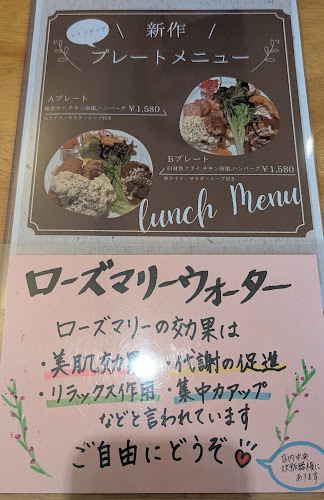 レディメイド
新作
プレートメニュー
Aプレート
海老カツ,チキン南蛮,ハンバーグ ¥1,580
※ライス・サラダ・スープ付き
Bプレート
白身魚フライ,チキン南蛮,ハンバーグ ¥1,580
※ライス・サラダ・スープ付き
lunch Menu
ローズマリーウォーター
ローズマリーの効果は
・美肌効果 ・代謝の促進
・リラックス作用 ・集中力アップ
などと言われています
ご自由にどうぞ
店内中央
炊飯器横に
あります